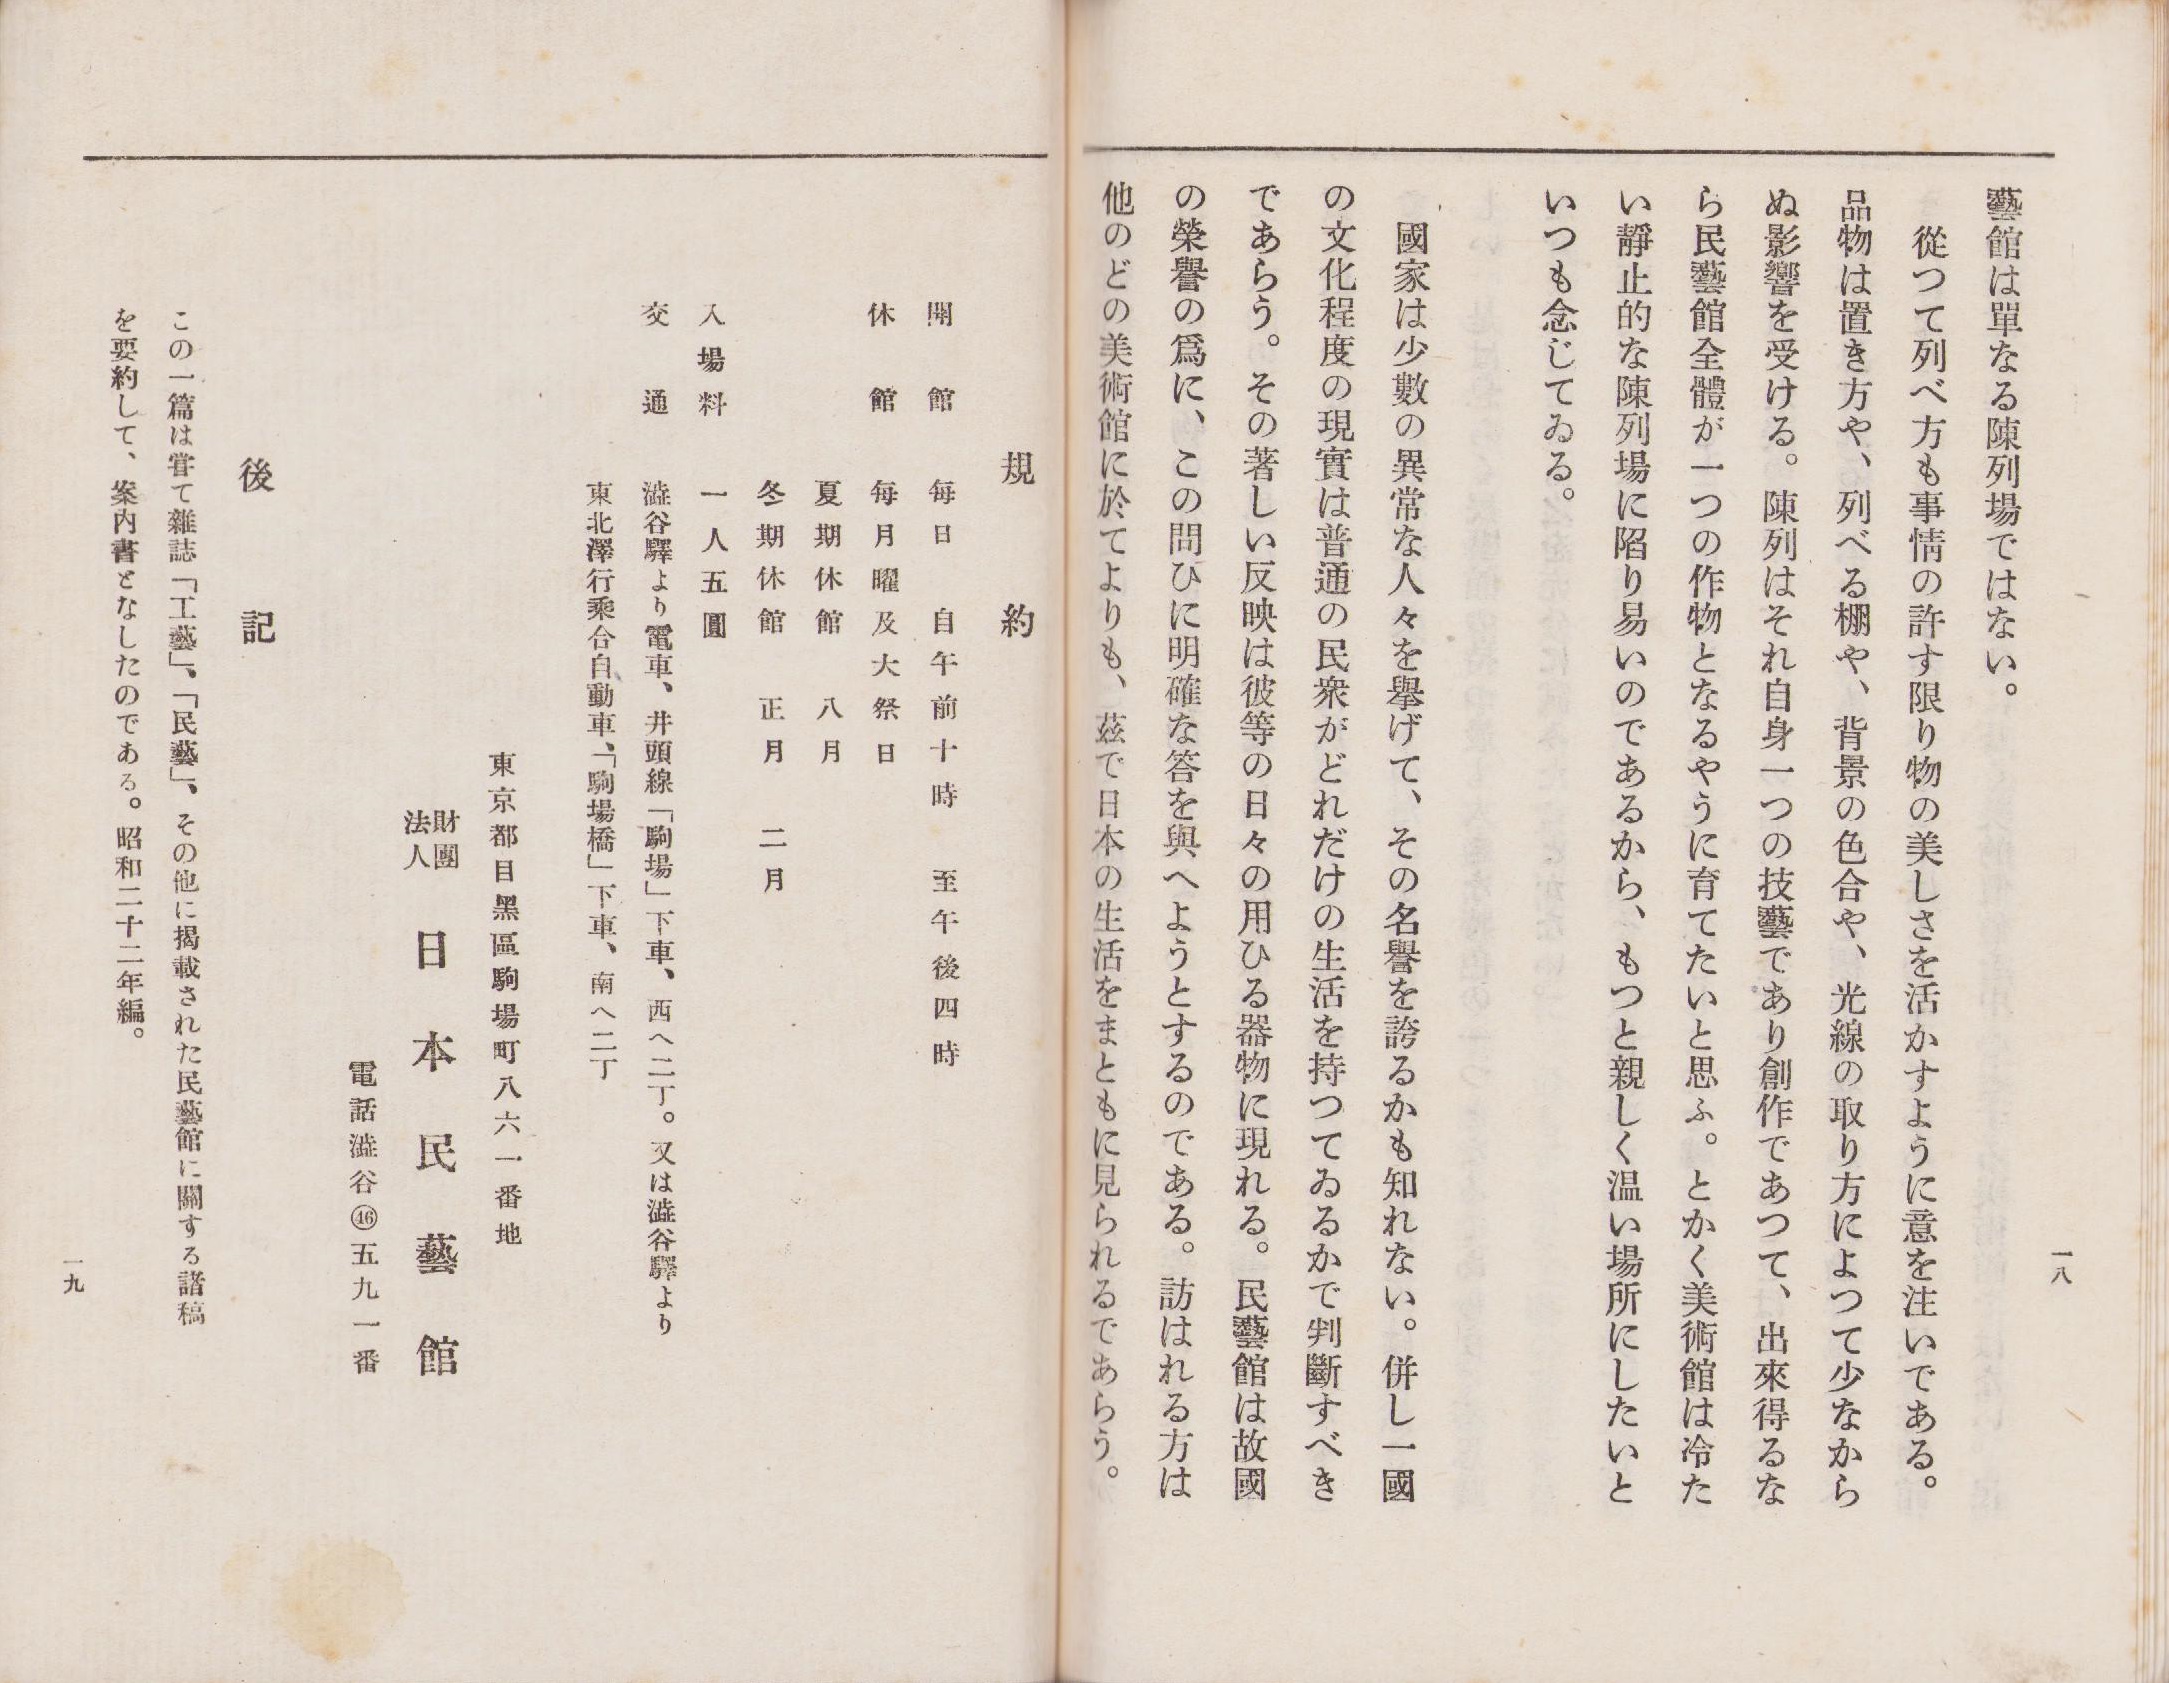 藝館は單なる陳列場ではない。
從つて列べ方も事情の許す限り物の美しさを活かすように意を注いである。
品物は置き方や、列べる棚や、背景の色合や、光線の取り方によつて少なから
ぬ影響を受ける。陳列はそれ自身一つの技藝であり創作であつて、出來得るな
ら民藝館全體が一つの作物となるやうに育てたいと思ふ。とかく美術館は冷た
い靜止的な陳列場に陷り易いのであるから、もつと親しく溫い場所にしたいと
いつも念じてゐる。
國家は少數の異常な人々を擧げて、その名譽を誇るかも知れない。併し一國
の文化程度の現實は普通の民衆がどれだけの生活を持つてゐるかで判斷すべき
であらう。その著しい反映は彼等の日々の用ひる器物に現れる。民藝館は故國
の榮譽の爲に、この問ひに明確な答を與へようとするのである。訪はれる方は
他のどの美術館に於てよりも、茲で日本の生活をまともに見られるであらう。
一八
規約
開館 每日 自午前十時 至午後四時
休館 每月曜及大祭日
夏期休館 八月
冬期休館 正月 二月
入場料 一人五圓
交通 澁谷驛より電車、井頭線「駒場」下車、西へ二丁。又は澁谷驛より
東北澤行乘合自動車、「駒場橋」下車、南へ二丁
東京都目黑區駒場町八六一番地
財團法人 日本民藝館
電話澁谷㊻五九一番
後記
この一篇は嘗て雜誌「工藝」、「民藝」、その他に揭載された民藝館に關する諸稿
を要約して、案內書となしたのである。昭和二十二年編。
一九